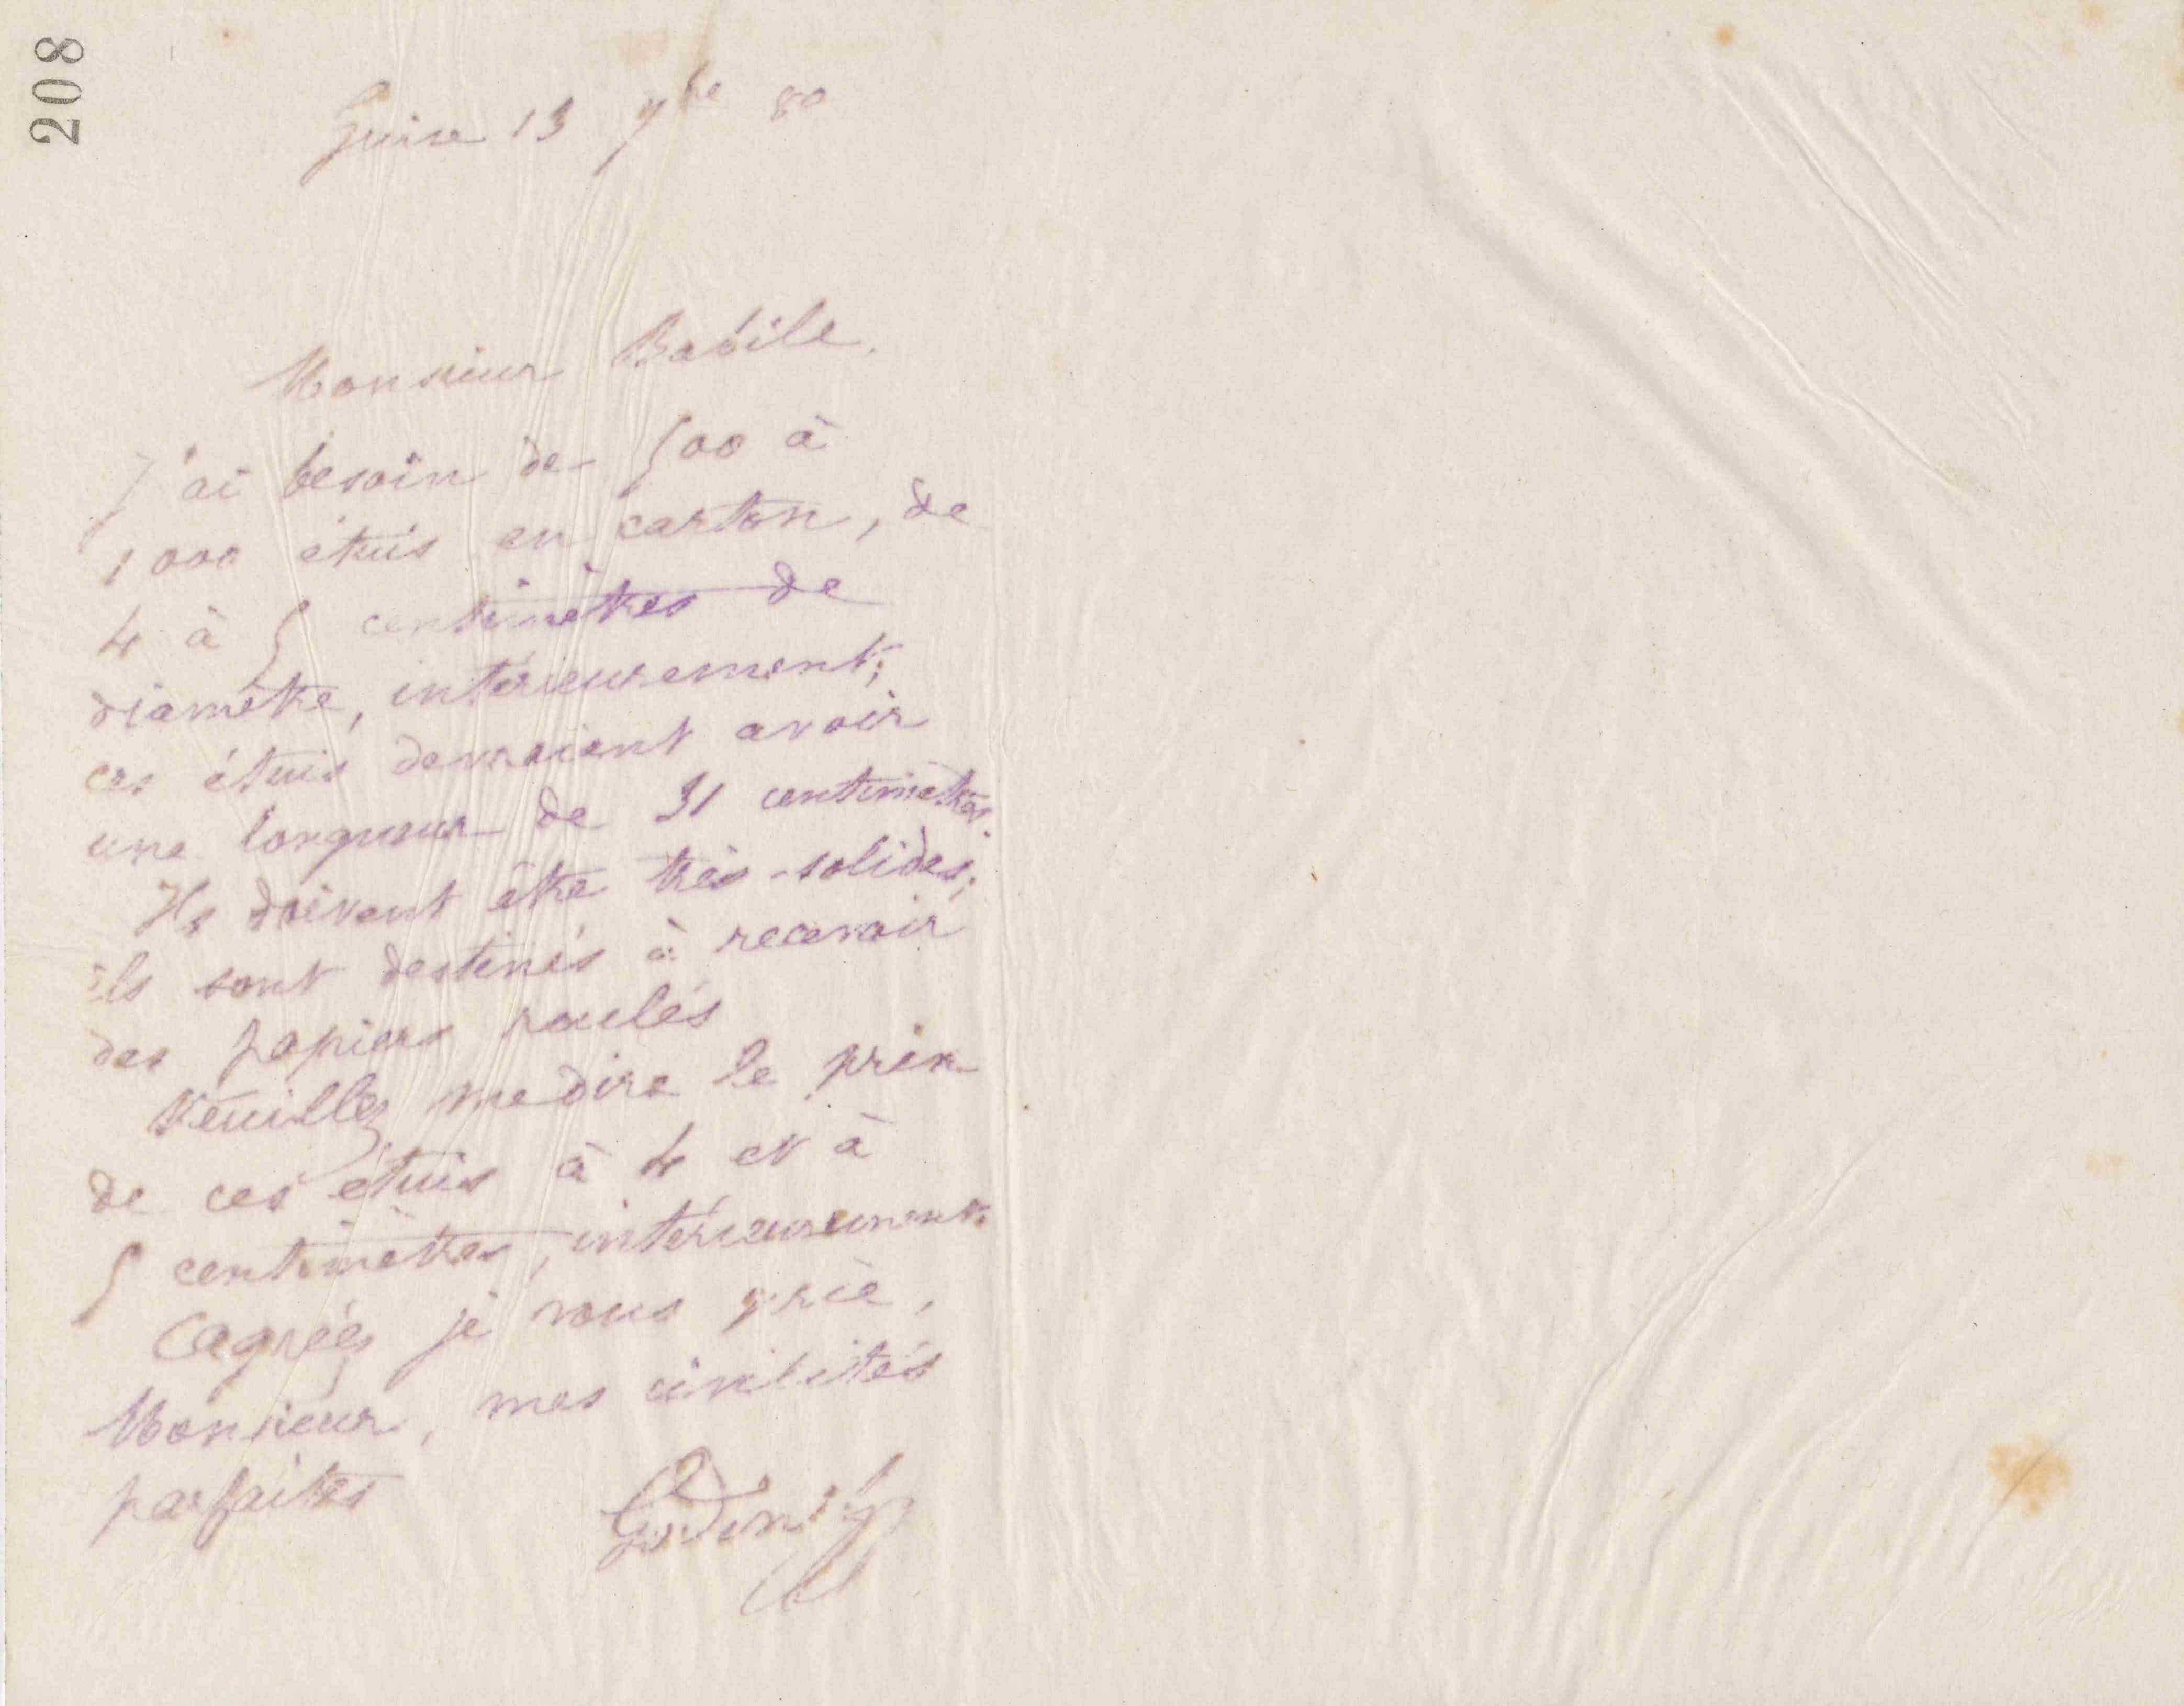 208
Guise 13 9bre 80
Monsieur Babile,
J'ai besoin de 500 à
1000 étuis en carton, de
4 à 5 centimètres de
diamètre, intérieurement;
ces étuis devraient avoir
une longueur de 31 centimètres.
Ils doivent être très-solides;
ils sont destinés à recevoir
des papiers roulés
Veuillez me dire le prix
de ces étuis à 4 et à
5 centimètres, intérieurement.
Agréez je vous prie,
Monsieur, mes civilités
parfaites
Godin